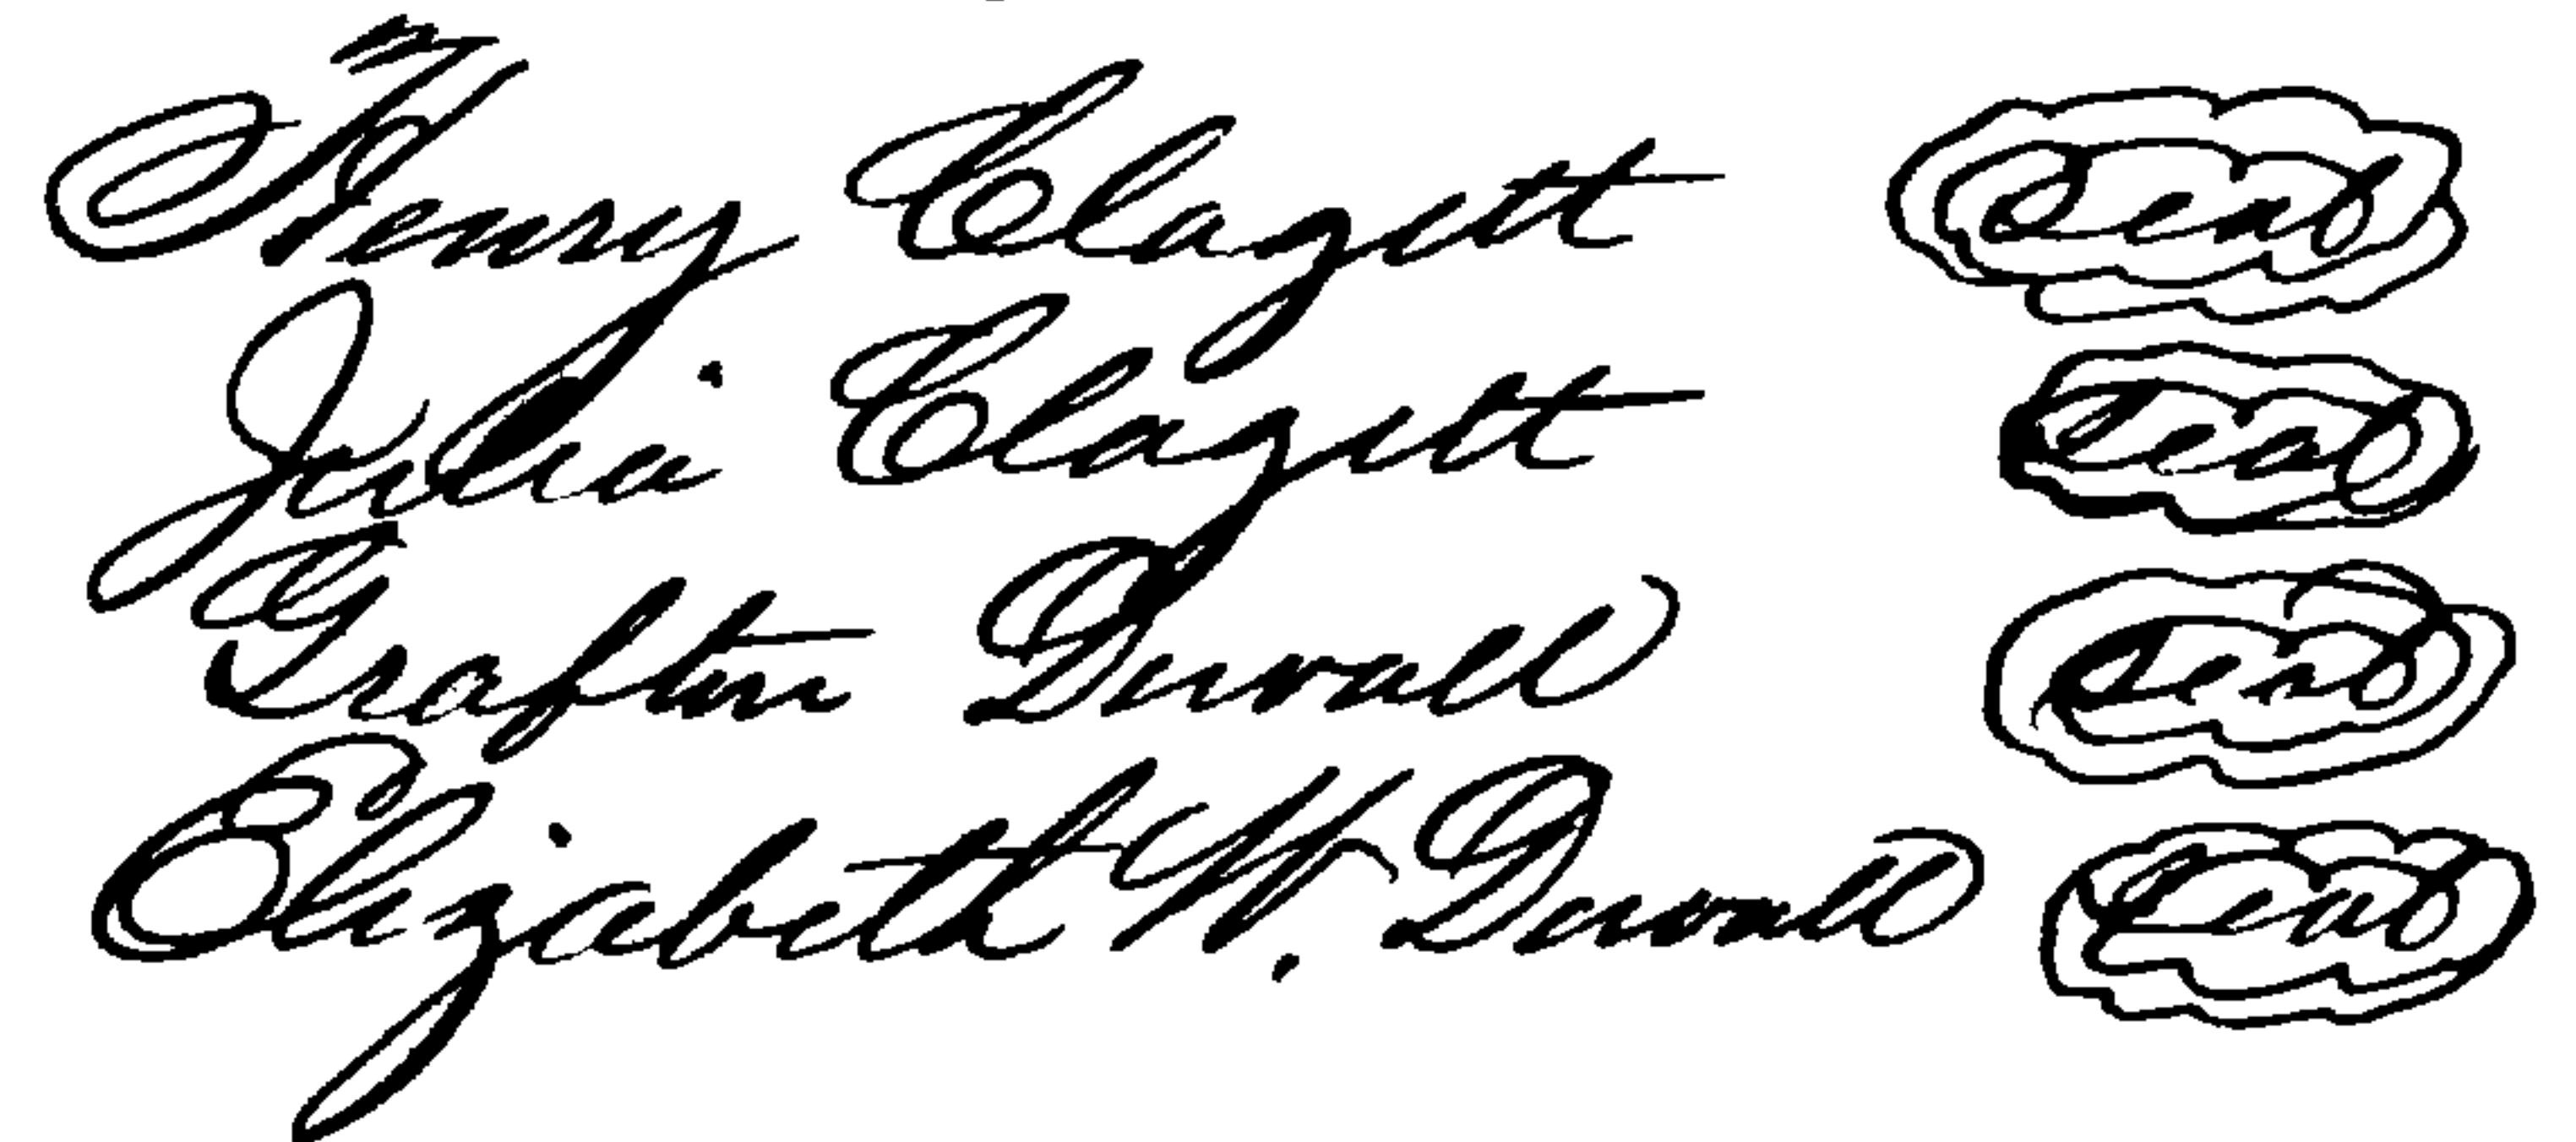 Henry Clagett Seal
Julia Clagett Seal
Grafton Duvall Seal
Elizabeth W. Duvall Seal